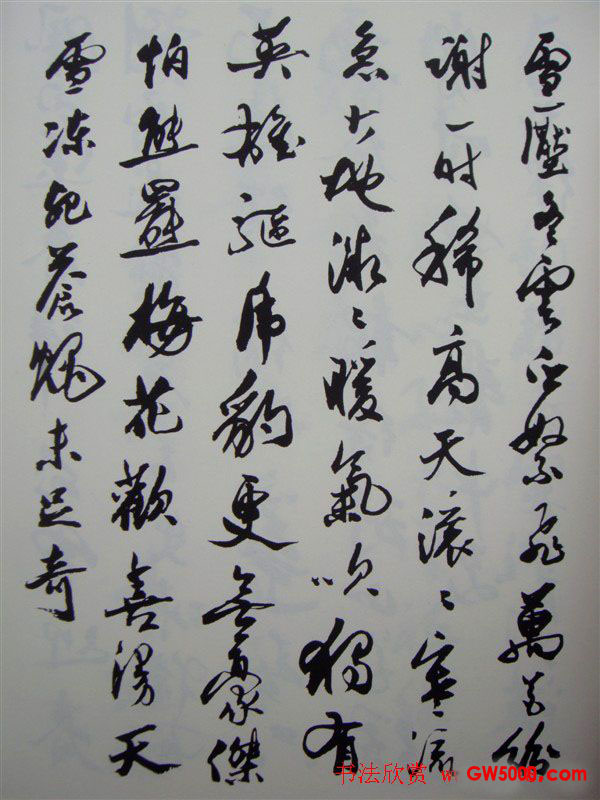 雪壓冬雲白絮飛萬花紛
謝一时稀高天滚〻寒流
急大地微〻暖氣吹獨有
英雄驅虎豹更無豪傑
怕熊羆梅花歡喜漫天
雪凍死蒼蠅未足奇
书法欣赏 GW5000.com